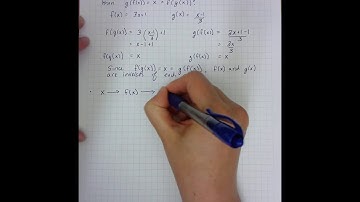 When g(f(x)) = x = f(g(x))?
f(x) = 3x+1 g(x) = x-1/3
f(g(x)) = 3(x-1/3)+1 g(f(x)) = 3x+1-1/3
= x-1+1 = 3x/3
f(g(x)) = x g(f(x)) = x
Since f(g(x)) = x = g(f(x)), f(x) and g(x)
are inverses of each
x → f(x) →